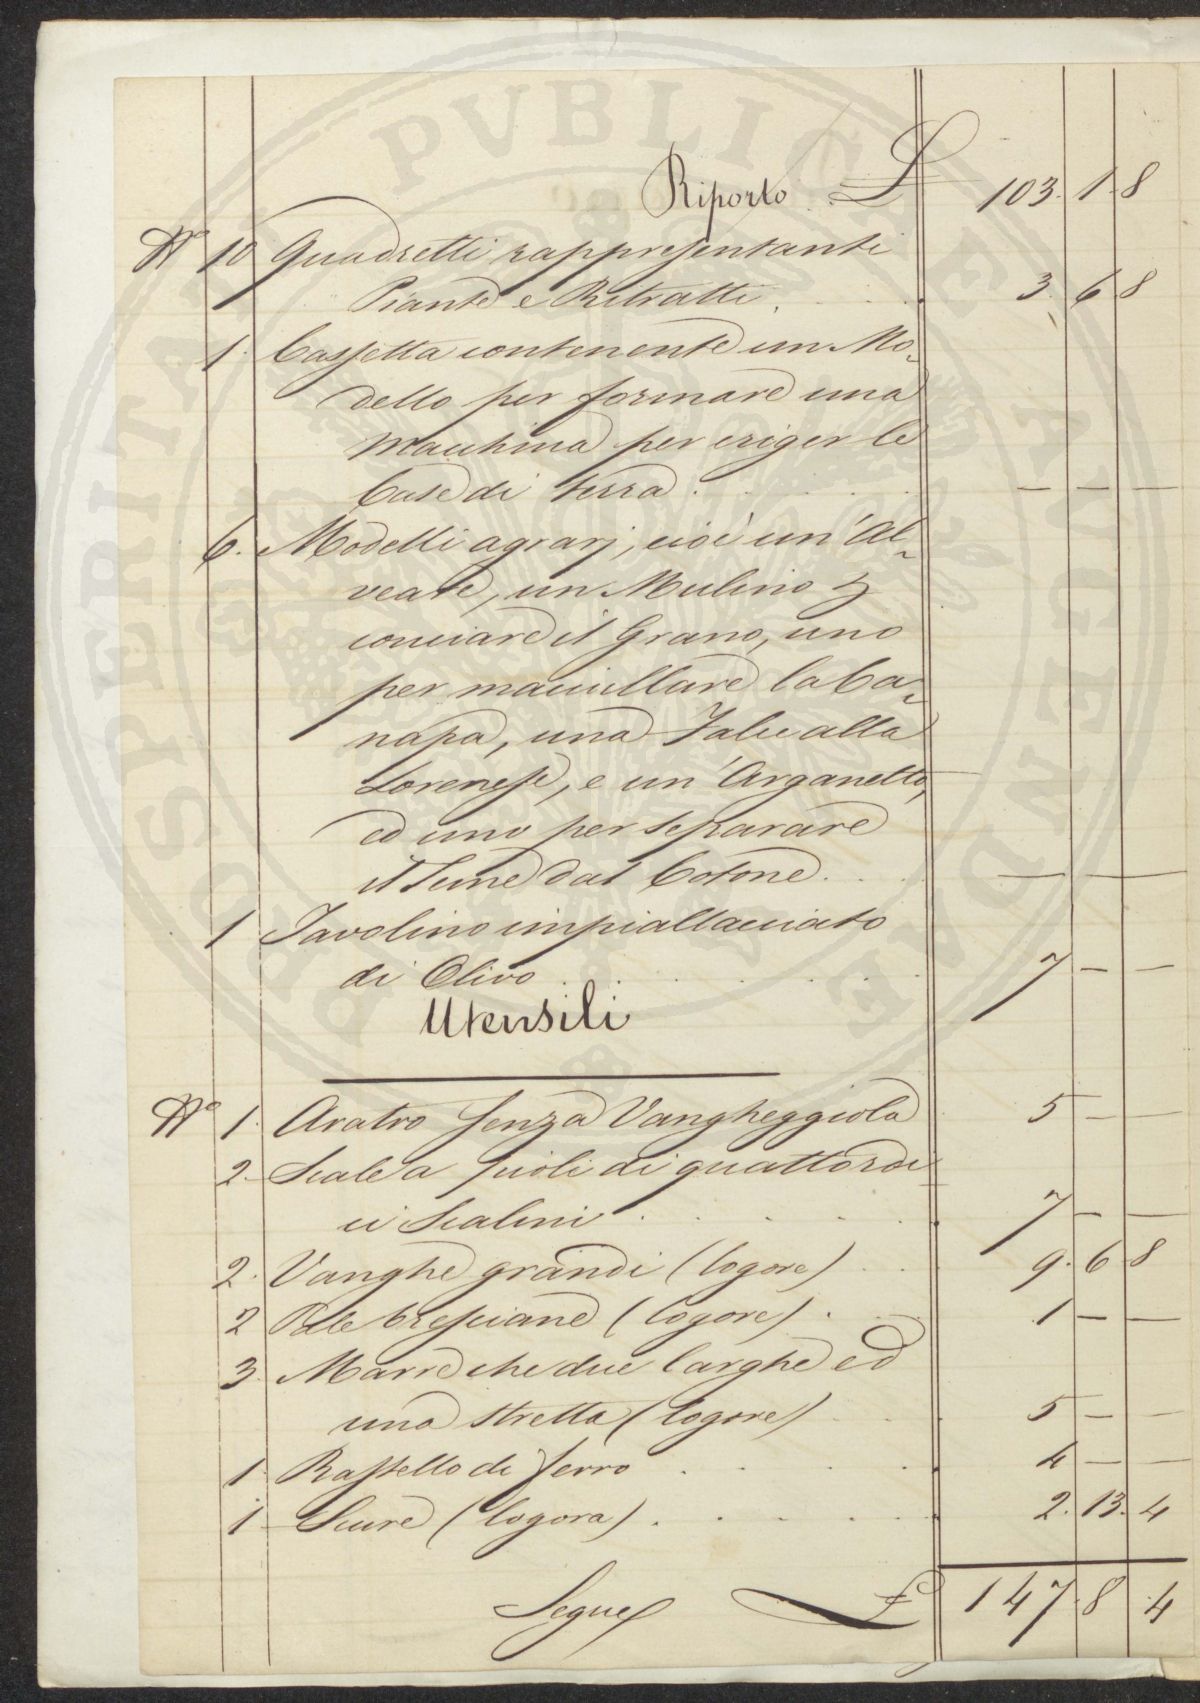 Riporto .. L 103. 1. 8
N.º 10 Quadretti rappresentanti
Piante e Ritratti . 3. 6 8
1. Cassetta contenente un Mo-
dello per formare una
Macchina per eriger le
Case di terra . — — —
6. Modelli agrarj, cioè un' Al-
veare, un Mulino p
conciare il Grano, uno
per maciullare la Ca-
napa, una Falce alla
Lorenese, e un' Arganetto,
ed uno per separare
il Seme dal Cotone . — — —
1 Tavolino impiallacciato
di Olivo . 7 — —
Utensili
N.º 1. Aratro senza Vangheggiola 5 — —
2. Scale a pioli di quattordi
ci Scalini . 7 — —
2. Vanghe grandi (logore) . 9. 6 8
2 Pale bresciane (logore) . 1 — —
3. Marre che due larghe ed
una stretta (logore) 5 — —
1. Rastello di ferro . 4 — —
1 Scure (logora) . 2. 13. 4
Segue £ 147. 8 4
PROSPERITATI PVBLICAE AVGENDAE